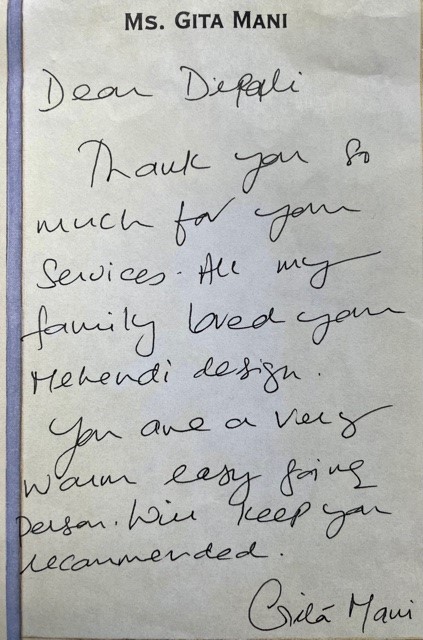 MS. GITA MANI
Dear Dipali
Thank you so
much for your
Services. All my
family loved your
Mehendi design.
You are a very
warm easy going
person. Will keep you
recommended.
Gita Mani